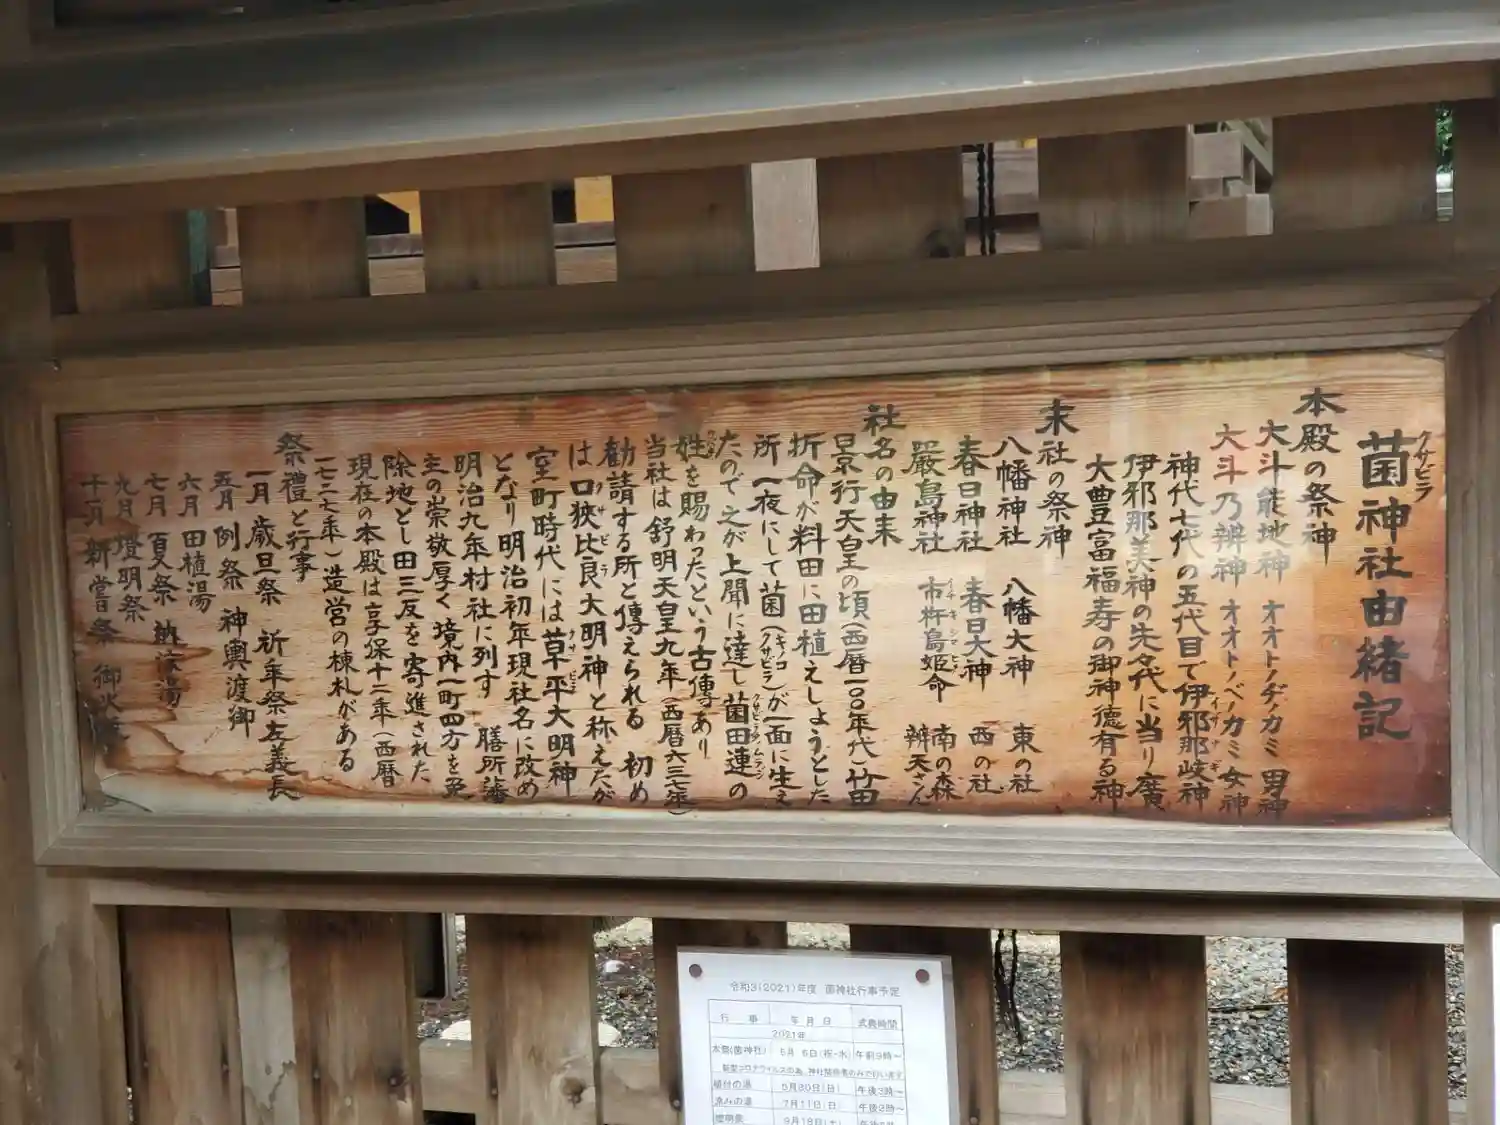 菌神社由緒記
クサビラ
本殿の祭神
大斗能地神 オオトノヂノカミ 男神
大斗乃辨神 オオトノベノカミ 女神
神代七代の五代目で伊邪那岐神
イザナギ
伊邪那美神の先代に当り廣
大豊富福寿の御神徳有る神
末社の祭神
八幡神社 八幡大神 東の社
春日神社 春日大神 西の社
嚴島神社 市杵島姫命 南の森
イチキシマヒメ
辨天さん
社名の由来
景行天皇の頃(西暦一〇〇年代)竹田
折命が料田に田植えしようとした
所一夜にして菌(キノコ クサビラ)が一面に生え
たので之が上聞に達し菌田連の
クサビラタノムラジ
姓を賜わったという古傳あり
当社は舒明天皇九年(西暦六三七年)
勧請する所と傳えられる 初め
は口狭比良大明神と称えたが
クサビラ
室町時代には草平大明神
クサビラ
となり明治初年現社名に改め
明治九年村社に列す 膳所藩
主の崇敬厚く境内一町四方を免
除地とし田三反を寄進された
現在の本殿は享保十二年(西暦
一七二七年)造営の棟札がある
祭禮と行事
一月 歳旦祭 祈年祭左義長
五月 例祭 神輿渡御
六月 田植湯
七月 夏祭 納涼湯
九月 燈明祭
十一月 新嘗祭 御火焚
令和3(2021)年度 菌神社行事予定
行 事 年 月 日 式典時間
2021年
本祭(菌神社) 5月 5日(祝・水) 午前9時~
新型コロナウィルスの為、神社関係者のみで行います
植付の湯 5月30日(日) 午後3時~
涼みの湯 7月11日(日) 午後3時~
燈明祭 9月18日(土)